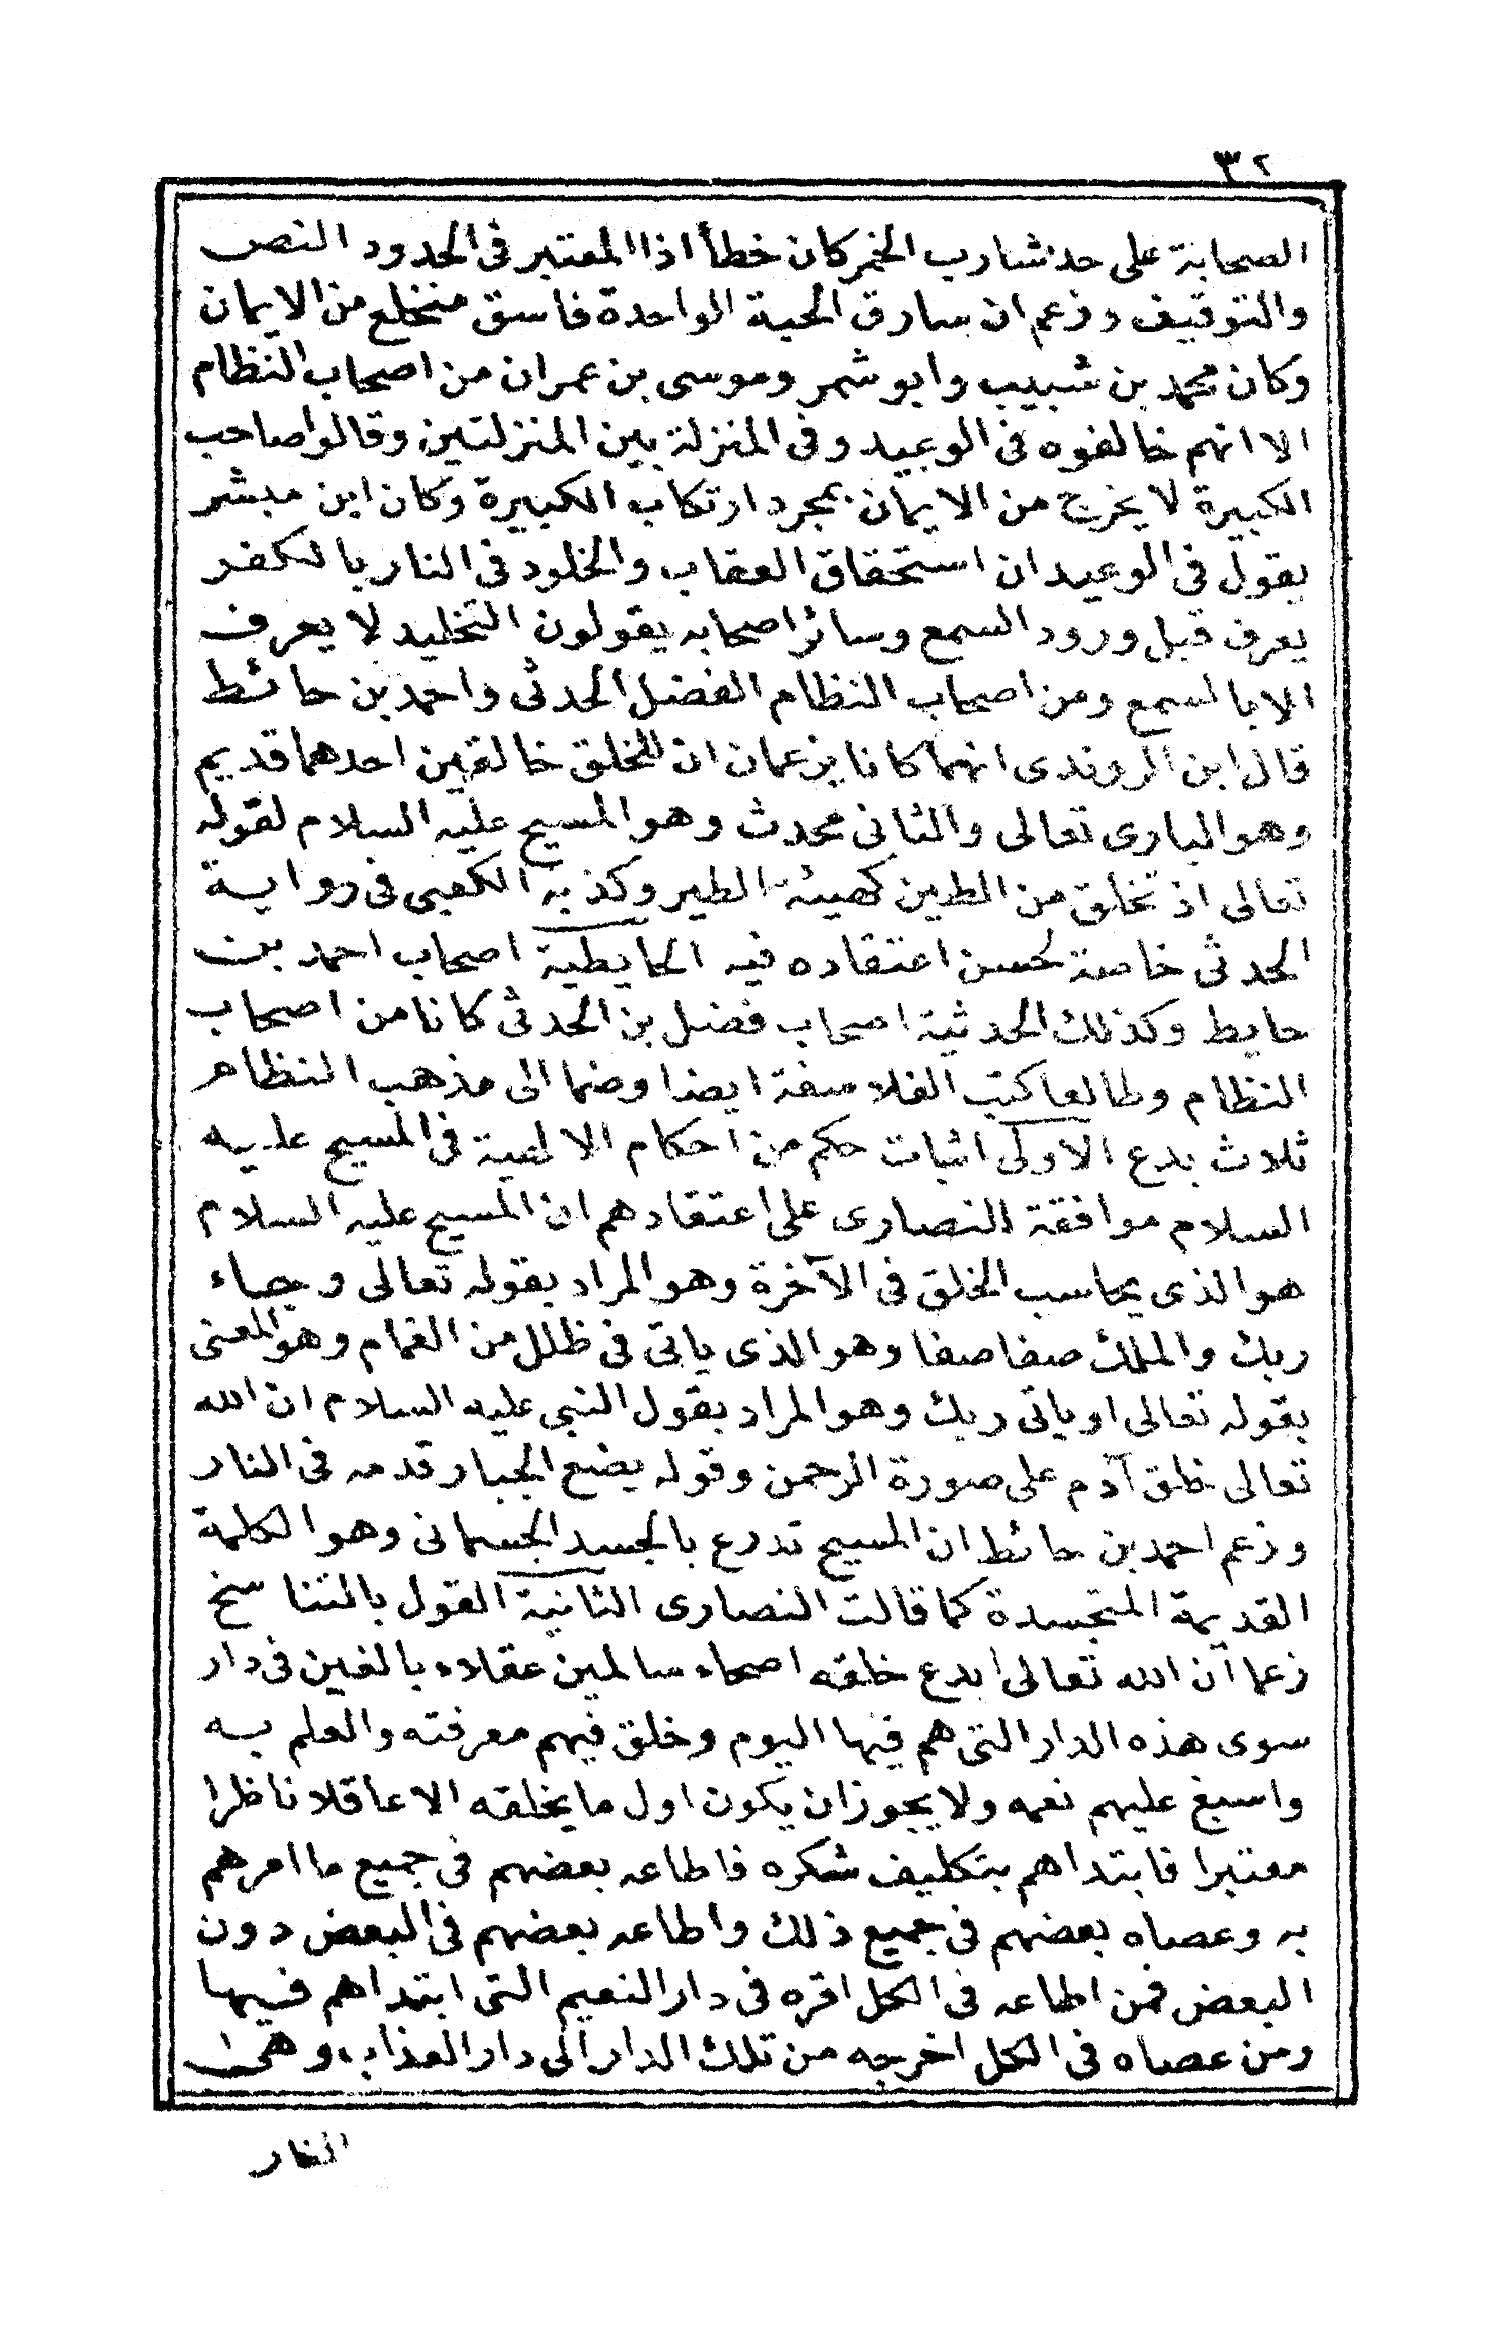 ٣٢
الصحابة على حد شارب الخمر كان خطأ اذ المعتبر فى الحدود النص
والتوقيف وزعم ان سارق الحبة الواحدة فاسق منخلع من الايمان
وكان محمد بن شبيب وابو شمر وموسى بن عمران من اصحاب النظام
الا انهم خالفوه فى الوعيد وفى المنزلة بين المنزلتين وقالوا صاحب
الكبيرة لا يخرج من الايمان بمجرد ارتكاب الكبيرة وكان ابن مبشر
يقول فى الوعيد ان استحقاق العقاب والخلود فى النار بالكفر
يعرف قبل ورود السمع وسائر اصحابه يقولون التخليد لا يعرف
الا بالسمع ومن اصحاب النظام الفضل الحدثى واحمد بن حائط
قال ابن الروندى انهما كانا يزعمان ان للخلق خالقين احدهما قديم
وهو البارى تعالى والثانى محدث وهو المسيح عليه السلام لقوله
تعالى اذ تخلق من الطين كهيئة الطير وكذبه الكعبى فى رواية
الحدثى خاصة لحسن اعتقاده فيه الحايطية اصحاب احمد بن
حايط وكذلك الحدثية اصحاب فضل بن الحدثى كانا من اصحاب
النظام وطالعا كتب الفلاسفة ايضا وضما الى مذهب النظام
ثلاث بدع الاولى اثبات حكم من احكام الالهية فى المسيح عليه
السلام موافقة النصارى على اعتقادهم ان المسيح عليه السلام
هو الذى يحاسب الخلق فى الآخرة وهو المراد بقوله تعالى وجاء
ربك والملك صفا صفا وهو الذى ياتى فى ظلل من الغمام وهو المعنى
بقوله تعالى او ياتى ربك وهو المراد بقول النبى عليه السلام ان الله
تعالى خلق آدم على صورة الرحمن وقوله يضع الجبار قدمه فى النار
وزعم احمد بن حائط ان المسيح تدرع بالجسد الجسمانى وهو الكلمة
القديمة المتجسدة كما قالت النصارى الثانية القول بالتناسخ
زعما ان الله تعالى ابدع خلقه اصحاء سالمين عقلاء بالغين فى دار
سوى هذه الدار التى هم فيها اليوم وخلق فيهم معرفته والعلم به
واسبغ عليهم نعمه ولا يجوز ان يكون اول ما يخلقه الا عاقلا ناظرا
معتبرا فابتداهم بتكليف شكره فاطاعه بعضهم فى جميع ما امرهم
به وعصاه بعضهم فى جميع ذلك واطاعه بعضهم فى البعض دون
البعض فمن اطاعه فى الكل اقره فى دار النعيم التى ابتداهم فيها
ومن عصاه فى الكل اخرجه من تلك الدار الى دار العذاب وهى
النار